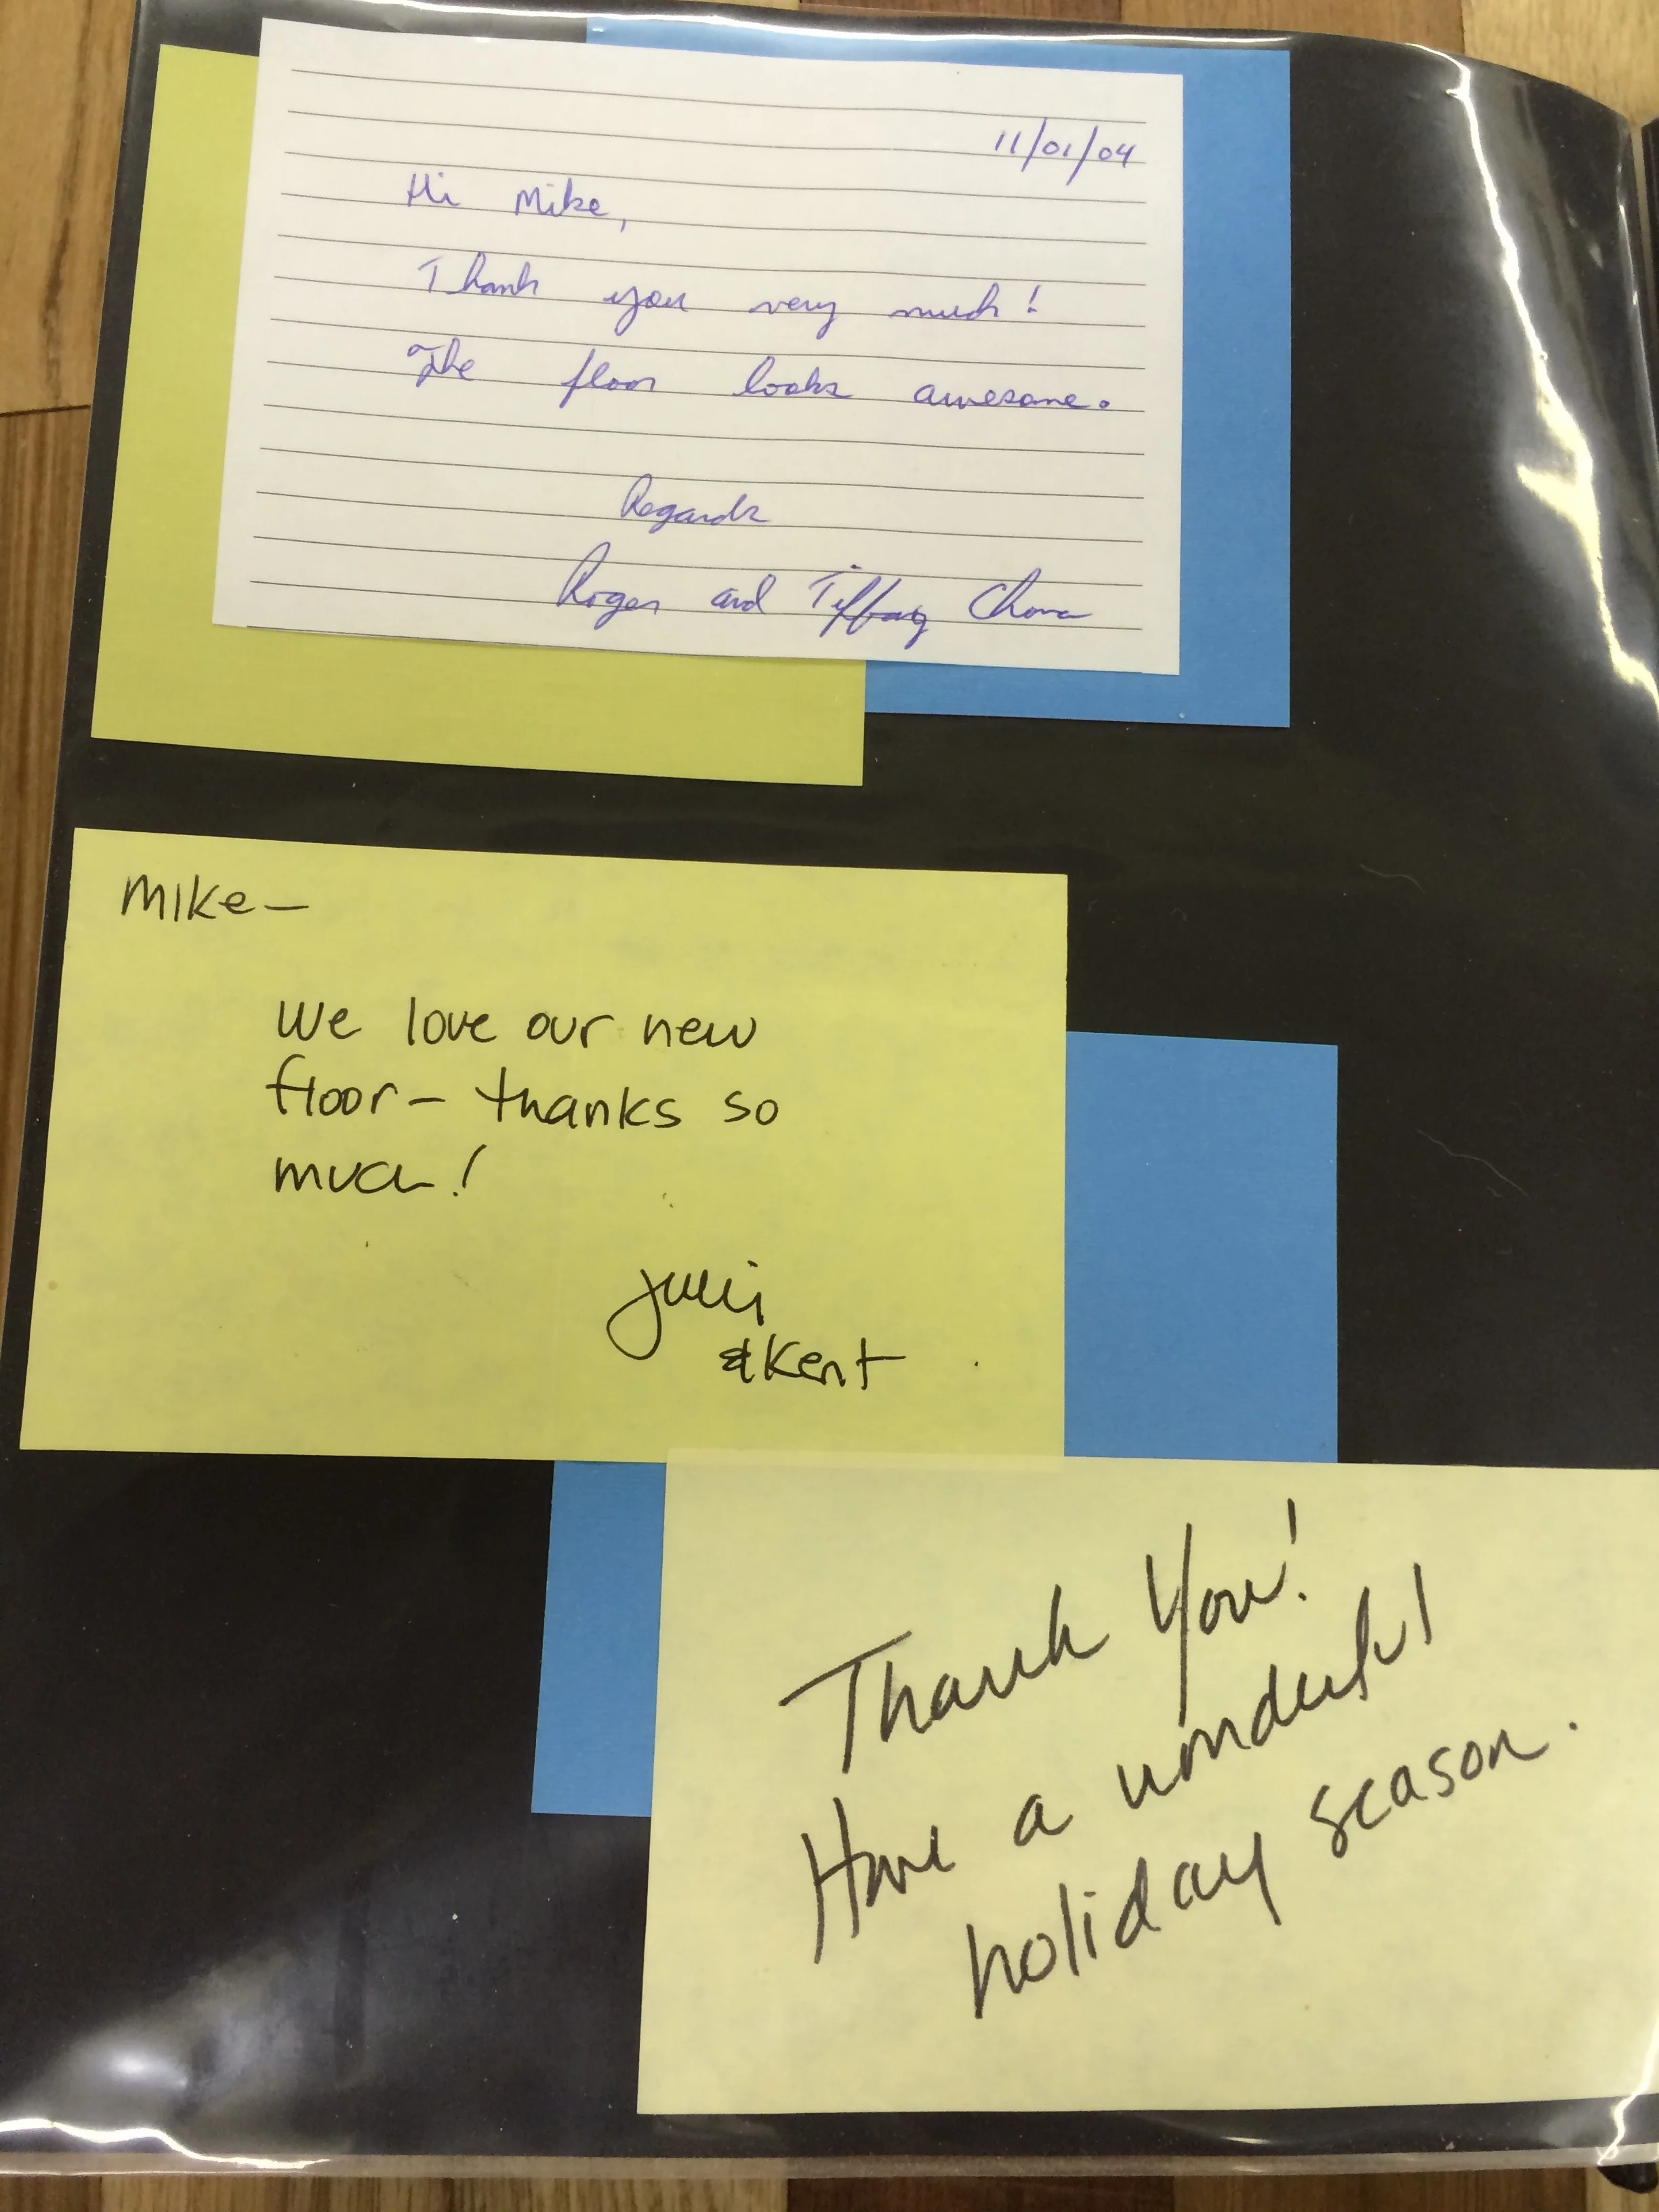 11/01/04
Hi Mike,
Thank you very much!
The floor looks awesome.
Regards
Roger and Tiffany
Mike—
We love our new
floor— thanks so
much!
& Kent
Thank You!
Have a wonderful
holiday season.